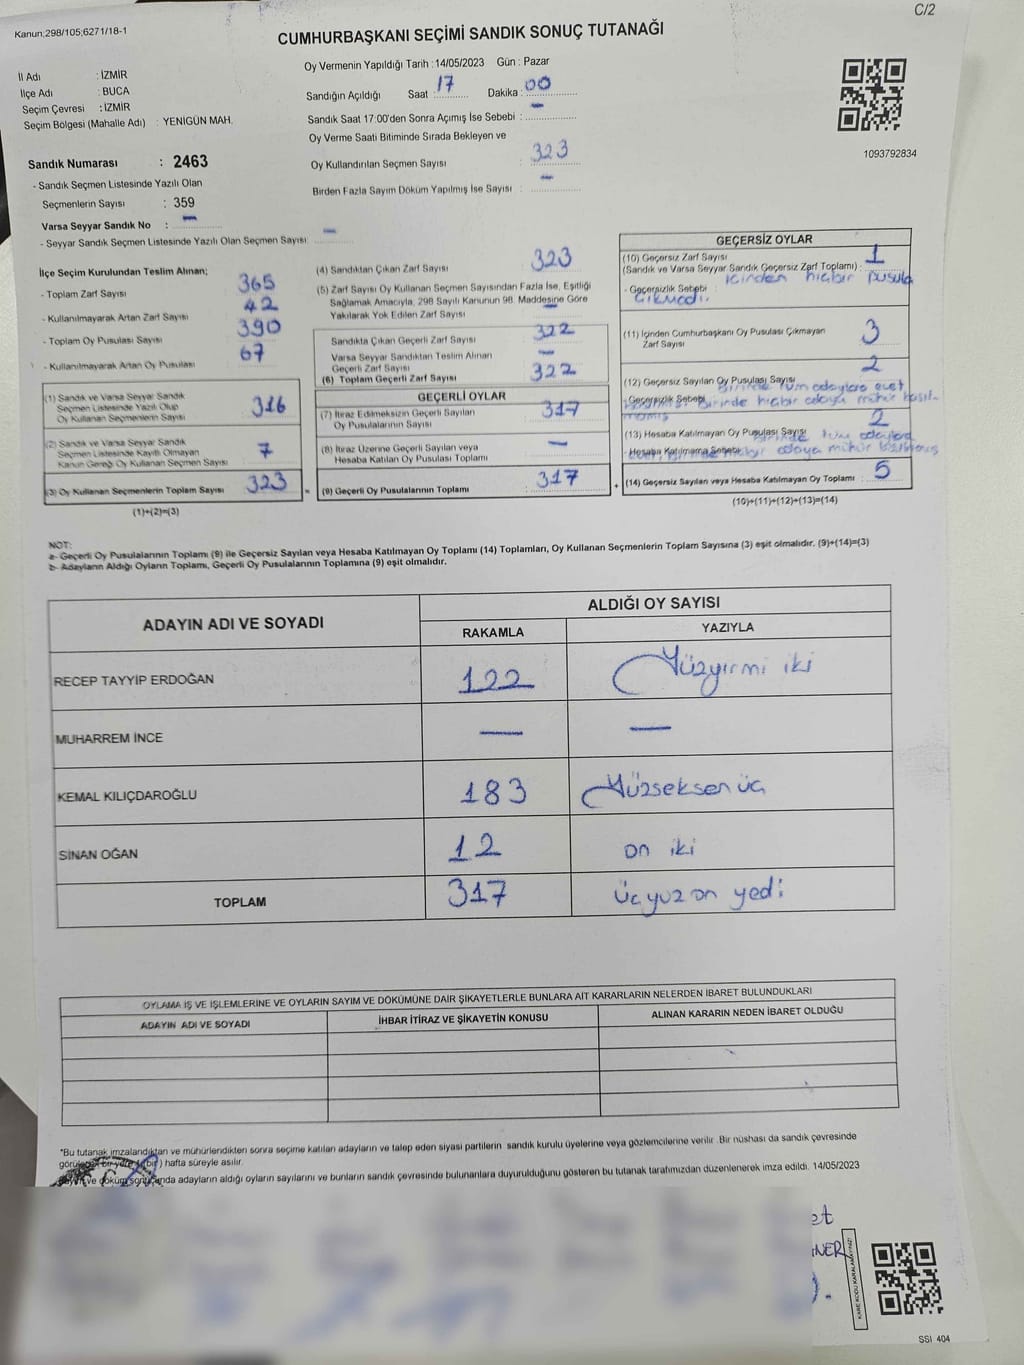 C/2
Kanun;298/105;6271/18-1
CUMHURBAŞKANI SEÇİMİ SANDIK SONUÇ TUTANAĞI
İl Adı : İZMİR
İlçe Adı : BUCA
Seçim Çevresi : İZMİR
Seçim Bölgesi (Mahalle Adı) : YENİGÜN MAH.
Oy Vermenin Yapıldığı Tarih : 14/05/2023 Gün : Pazar
Sandığın Açıldığı Saat 17 Dakika : 00
Sandık Saat 17:00'den Sonra Açımış İse Sebebi : —
Oy Verme Saati Bitiminde Sırada Bekleyen ve
Oy Kullandırılan Seçmen Sayısı : 323
Birden Fazla Sayım Döküm Yapılmış İse Sayısı : —
1093792834
Sandık Numarası : 2463
- Sandık Seçmen Listesinde Yazılı Olan
Seçmenlerin Sayısı : 359
Varsa Seyyar Sandık No : —
- Seyyar Sandık Seçmen Listesinde Yazılı Olan Seçmen Sayısı : —
İlçe Seçim Kurulundan Teslim Alınan;
- Toplam Zarf Sayısı : 365
- Kullanılmayarak Artan Zarf Sayısı : 42
- Toplam Oy Pusulası Sayısı : 390
- Kullanılmayarak Artan Oy Pusulası : 67
(1) Sandık ve Varsa Seyyar Sandık
Seçmen Listesinde Yazılı Olup
Oy Kullanan Seçmenlerin Sayısı : 316
(2) Sandık ve Varsa Seyyar Sandık
Seçmen Listesinde Kayıtlı Olmayan
Kanun Gereği Oy Kullanan Seçmen Sayısı : 7
(3) Oy Kullanan Seçmenlerin Toplam Sayısı : 323
(1)+(2)=(3)
(4) Sandıktan Çıkan Zarf Sayısı : 323
(5) Zarf Sayısı Oy Kullanan Seçmen Sayısından Fazla İse, Eşitliği
Sağlamak Amacıyla, 298 Sayılı Kanunun 98. Maddesine Göre
Yakılarak Yok Edilen Zarf Sayısı : —
Sandıkta Çıkan Geçerli Zarf Sayısı : 322
Varsa Seyyar Sandıktan Teslim Alınan
Geçerli Zarf Sayısı : —
(6) Toplam Geçerli Zarf Sayısı : 322
GEÇERLİ OYLAR
(7) İtiraz Edilmeksizin Geçerli Sayılan
Oy Pusulasının Sayısı : 317
(8) İtiraz Üzerine Geçerli Sayılan veya
Hesaba Katılan Oy Pusulası Toplamı : —
= (9) Geçerli Oy Pusulalarının Toplamı : 317
GEÇERSİZ OYLAR
(10) Geçersiz Zarf Sayısı
(Sandık ve Varsa Seyyar Sandık Geçersiz Zarf Toplamı) : 1
- Geçersizlik Sebebi : içinden hiçbir pusula
çıkmadı.
(11) İçinden Cumhurbaşkanı Oy Pusulası Çıkmayan
Zarf Sayısı : 3
(12) Geçersiz Sayılan Oy Pusulası Sayısı : 2
- Geçersizlik Sebebi : Birinde tüm adaylara evet
basılmış. Birinde hiçbir adaya mühür basıl-
mamış
(13) Hesaba Katılmayan Oy Pusulası Sayısı : 2
- Hesaba Katılmama Sebebi : Birinde tüm adaylara
Birinde hiçbir adaya mühür basılmamış
+ (14) Geçersiz Sayılan veya Hesaba Katılmayan Oy Toplamı : 5
(10)+(11)+(12)+(13)=(14)
NOT:
a- Geçerli Oy Pusulalarının Toplamı (9) ile Geçersiz Sayılan veya Hesaba Katılmayan Oy Toplamı (14) Toplamları, Oy Kullanan Seçmenlerin Toplam Sayısına (3) eşit olmalıdır. (9)+(14)=(3)
b- Adayların Aldığı Oyların Toplamı, Geçerli Oy Pusulalarının Toplamına (9) eşit olmalıdır.
ADAYIN ADI VE SOYADI
ALDIĞI OY SAYISI
RAKAMLA YAZIYLA
RECEP TAYYİP ERDOĞAN 122 Yüzyirmi iki
MUHARREM İNCE — —
KEMAL KILIÇDAROĞLU 183 Yüzseksen üç
SİNAN OĞAN 12 on iki
TOPLAM 317 üçyüz on yedi
OYLAMA İŞ VE İŞLEMLERİNE VE OYLARIN SAYIM VE DÖKÜMÜNE DAİR ŞİKAYETLERLE BUNLARA AİT KARARLARIN NELERDEN İBARET BULUNDUKLARI
ADAYIN ADI VE SOYADI İHBAR İTİRAZ VE ŞİKAYETİN KONUSU ALINAN KARARIN NEDEN İBARET OLDUĞU
*Bu tutanak imzalandıktan ve mühürlendikten sonra seçime katılan adayların ve talep eden siyasi partilerin sandık kurulu üyelerine veya gözlemcilerine verilir. Bir nüshası da sandık çevresinde
görülecek bir yere (bir) hafta süreyle asılır.
Sayım ve döküm sonucunda adayların aldığı oyların sayılarını ve bunların sandık çevresinde bulunanlara duyurulduğunu gösteren bu tutanak tarafımızdan düzenlenerek imza edildi. 14/05/2023
et
NER
KARE KODU KARALAMAYINIZ!
SSİ 404